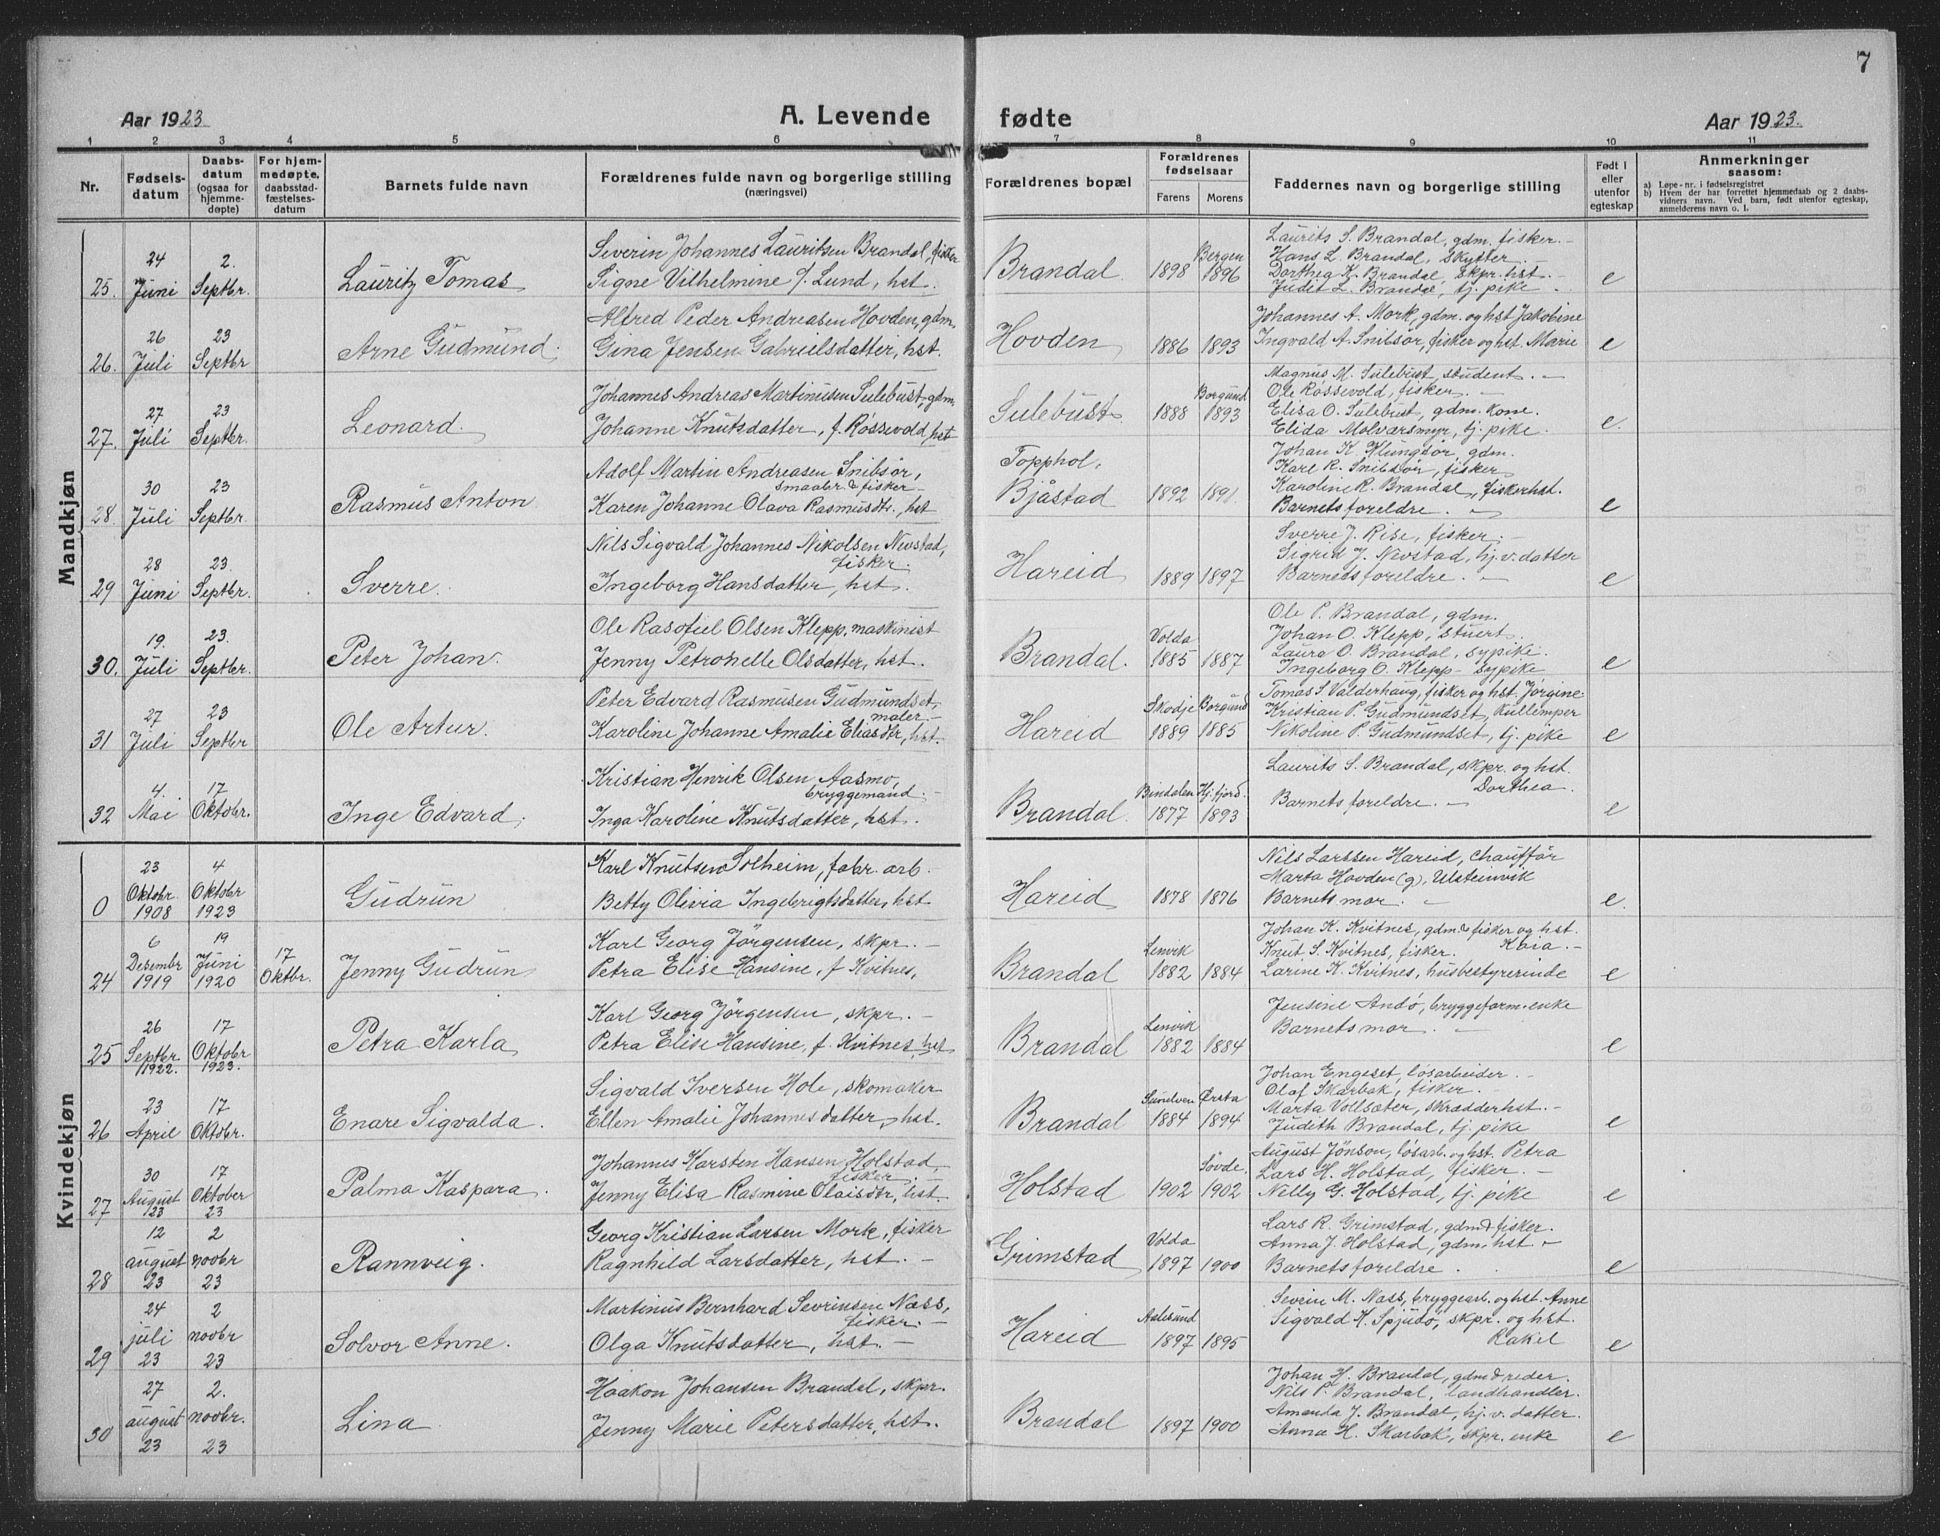 7
Aar 1923
A. Levende
fødte
Aar 1923.
1 2 3 4 5 6 7 8 9 10 11
Nr.
Fødsels-
datum
Daabs-
datum
(ogsaa for
hjemme-
døpte)
For hjem-
medøpte,
daabsstad-
fæstelses-
datum
Barnets fulde navn
Forældrenes fulde navn og borgerlige stilling
(næringsvei)
Forældrenes bopæl
Forældrenes
fødselsaar
Farens Morens
Faddernes navn og borgerlige stilling
Født i
eller
utenfor
egteskap
Anmerkninger
saasom:
a) Løpe-nr. i fødselsregistret
b) Hvem der har forrettet hjemmedaab og 2 daabs-
vidners navn. Ved barn, født utenfor egteskap,
anmelderens navn o. l.
Mandkjøn
25. 24 Juni 2. Septbr. Lauritz Tomas
Siverin Johannes Lauritsen Brandal, fisker
Signe Vilhelmine f. Lund, hst.
Brandal 1898 Bergen 1896
Laurits S. Brandal, gdm. fisker. -
Hans L. Brandal, skytter -
Dorthea K. Brandal, skpr. hst. -
Judit L. Brandal, tj. pike -
e
26. 26 Juli 23 Septbr Arne Gudmund.
Alfred Peder Andreasen Hovden, gdm.
Gina Jensen Gabrielsdatter, hst.
Hovden 1886 1893
Johannes A. Mork, gdm. og hst Jakobine
Ingvald A. Snibsør, fisker og hst. Marie
e
27. 27 Juli 23 Septbr. Leonard.
Johannes Andreas Martinusen Sulebust, gdm.
Johanne Knutsdatter, f. Røssevold, hst
Sulebust 1888 Borgund 1893
Magnus M. Sulebust, student. -
Ole Røssevold, fisker. -
Elisa O. Sulebust, gdm. kone.
Elida Molværsmyr, tj. pike.
e.
28. 30 Juli 23 Septbr. Rasmus Anton
Adolf Martin Andreasen Snibsør,
smaabr. & fisker -
Karen Johanne Olava Rasmusdtr., hst
Topphol,
Bjåstad 1892 1891.
Johan K. Klungsør, gdm.
Karl R. Snibsør, fisker
Karoline R. Brandal, fiskerhst.
Barnets foreldre. -
e
29 28 Juni 23. Septbr. Sverre.
Nils Sigvald Johannes Nikolsen Nevstad,
fisker.
Ingeborg Hansdatter, hst.
Hareid 1889 1897
Sverre J. Rise, fisker. -
Sigrid J. Nevstad, hj. v. datter
Barnets foreldre. -
e
30. 19. Juli 23. Septbr. Peter Johan.
Ole Rasofiel Olsen Klepp, maskinist
Jenny Petronelle Olsdatter, hst.
Brandal. Volda 1885 1887
Ole P. Brandal, gdm.
Johan O. Klepp, stuert.
Laura O. Brandal, sypike.
Ingeborg O. Klepp - sypike
e
31 27 Juli 23 Septbr Ole Artur.
Peter Edvard Rasmusen Gudmundset,
maler. -
Karoline Johanne Amalie Eliasdtr, hst.
Hareid Skodje 1889 Borgund 1885
Tomas S. Valderhaug, fisker og hst. Jørgine
Kristian P. Gudmundset, kullemper
Nikoline P. Gudmundset, tj. pike
e
32 4. Mai 17 Oktobr. Inge Edvard.
Kristian Henrik Olsen Aasmo,
bryggemand. -
Inga Karoline Knutsdatter, hst.
Brandal. Bindalen 1877 Hj.fjord. 1893
Laurits S. Brandal, skpr. og hst.
Dorthea.
Barnets foreldre. -
e
Kvindekjøn
0 23 Oktobr. 1908 4 Oktobr 1923 Gudrun
Karl Knutsen Solheim, fabr. arb. -
Betty Olivia Ingebrigtsdatter, hst
Hareid 1878 1876
Nils Larssen Hareid, chauffør
Marta Hovden (g), Ulstenvik
Barnets mor. -
e.
24 6 Desembr 1919 19 Juni 1920 17 Oktbr. Jenny Gudrun
Karl Georg Jørgensen, skpr. -
Petra Elise Hansine, f. Kvitnes,
Brandal Lenvik 1882 1884
Johan K. Kvitnes, gdm. & fisker og hst.
Knut S. Kvitnes, fisker. Kaia. -
Larine K. Kvitnes, husbestyrerinde
e
25 26 Septbr. 1922. 17 Oktobr 1923. Petra Karla
Karl Georg Jørgensen, skpr. -
Petra Elise Hansine, f. Kvitnes, hst
Brandal Lenvik 1882 1884
Jensine Andø, bryggeform. enke
Barnets mor. -
e
26 23 April 17 Oktobr. Enare Sigvalda.
Sigvald Iversen Hole, skomaker
Ellen Amalie Johannesdatter, hst.
Brandal Sunelven 1884 Ørsta 1894
Johan Engeset, løsarbeider. -
Olaf Skarbak, fisker.
Marta Vollsæter, skrædderhst. -
Judith Brandal, tj. pike
e
27 30 August 23 17 Oktober 23 Palma Kaspara.
Johannes Karsten Hansen Holstad,
fisker. -
Jenny Elisa Rasmine Olaisdtr, hst.
Holstad 1902 Søvde. 1902
August Jonson, løsarb. og hst. Petra
Lars H. Holstad, fisker. -
Nelly G. Holstad, tj. pike
e
28 12 august 23 2 novbr 23 Rannveig.
Georg Kristian Larsen Mork, fisker
Ragnhild Larsdatter, hst. -
Grimstad Volda 1897 1900
Lars R. Grimstad, gdm & fisker.
Anna J. Holstad, gdm. hst -
Barnets foreldre.
e
29 24 juli 23 2 novbr 23 Solvor Anne.
Martinus Bernhard Sevrinsen Næss,
fisker. -
Olga Knutsdatter, hst. -
Hareid Aalesund 1897 1895
Severin M. Næss, bryggearb. og hst. Anne
Sigvald K. Spjudø, skpr. og hst.
Rakil
e
30 27 august 23 2. novbr. 23 Lina
Haakon Johansen Brandal, skpr.
Jenny Marie Petersdatter, hst.
Brandal 1897 1900
Johan H. Brandal, gdm & reder.
Nils P. Brandal, landhandler.
Amanda J. Brandal, hj. v. datter.
Anna H. Skarbak, skpr. enke
e